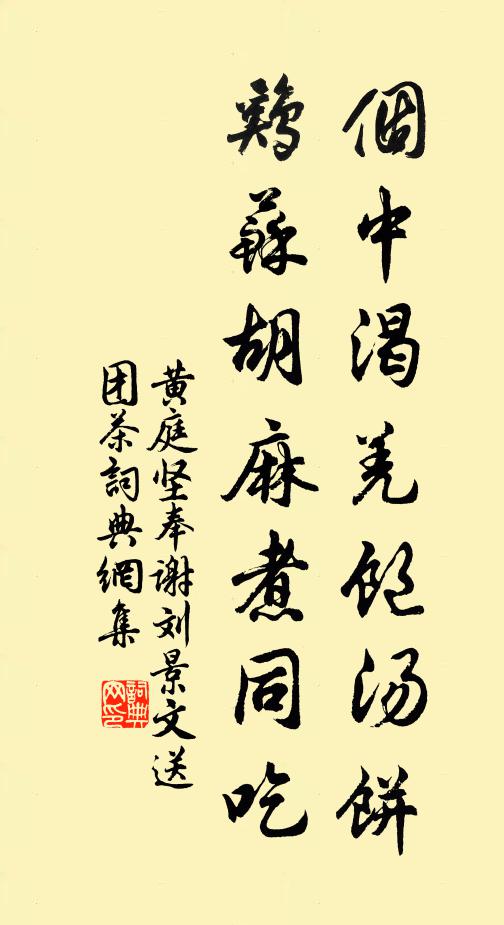 個中渴羌飽汤餅
鷄蘇胡麻煮同吃
黄庭坚奉谢刘景文送
团茶詞典網集
詞典网印